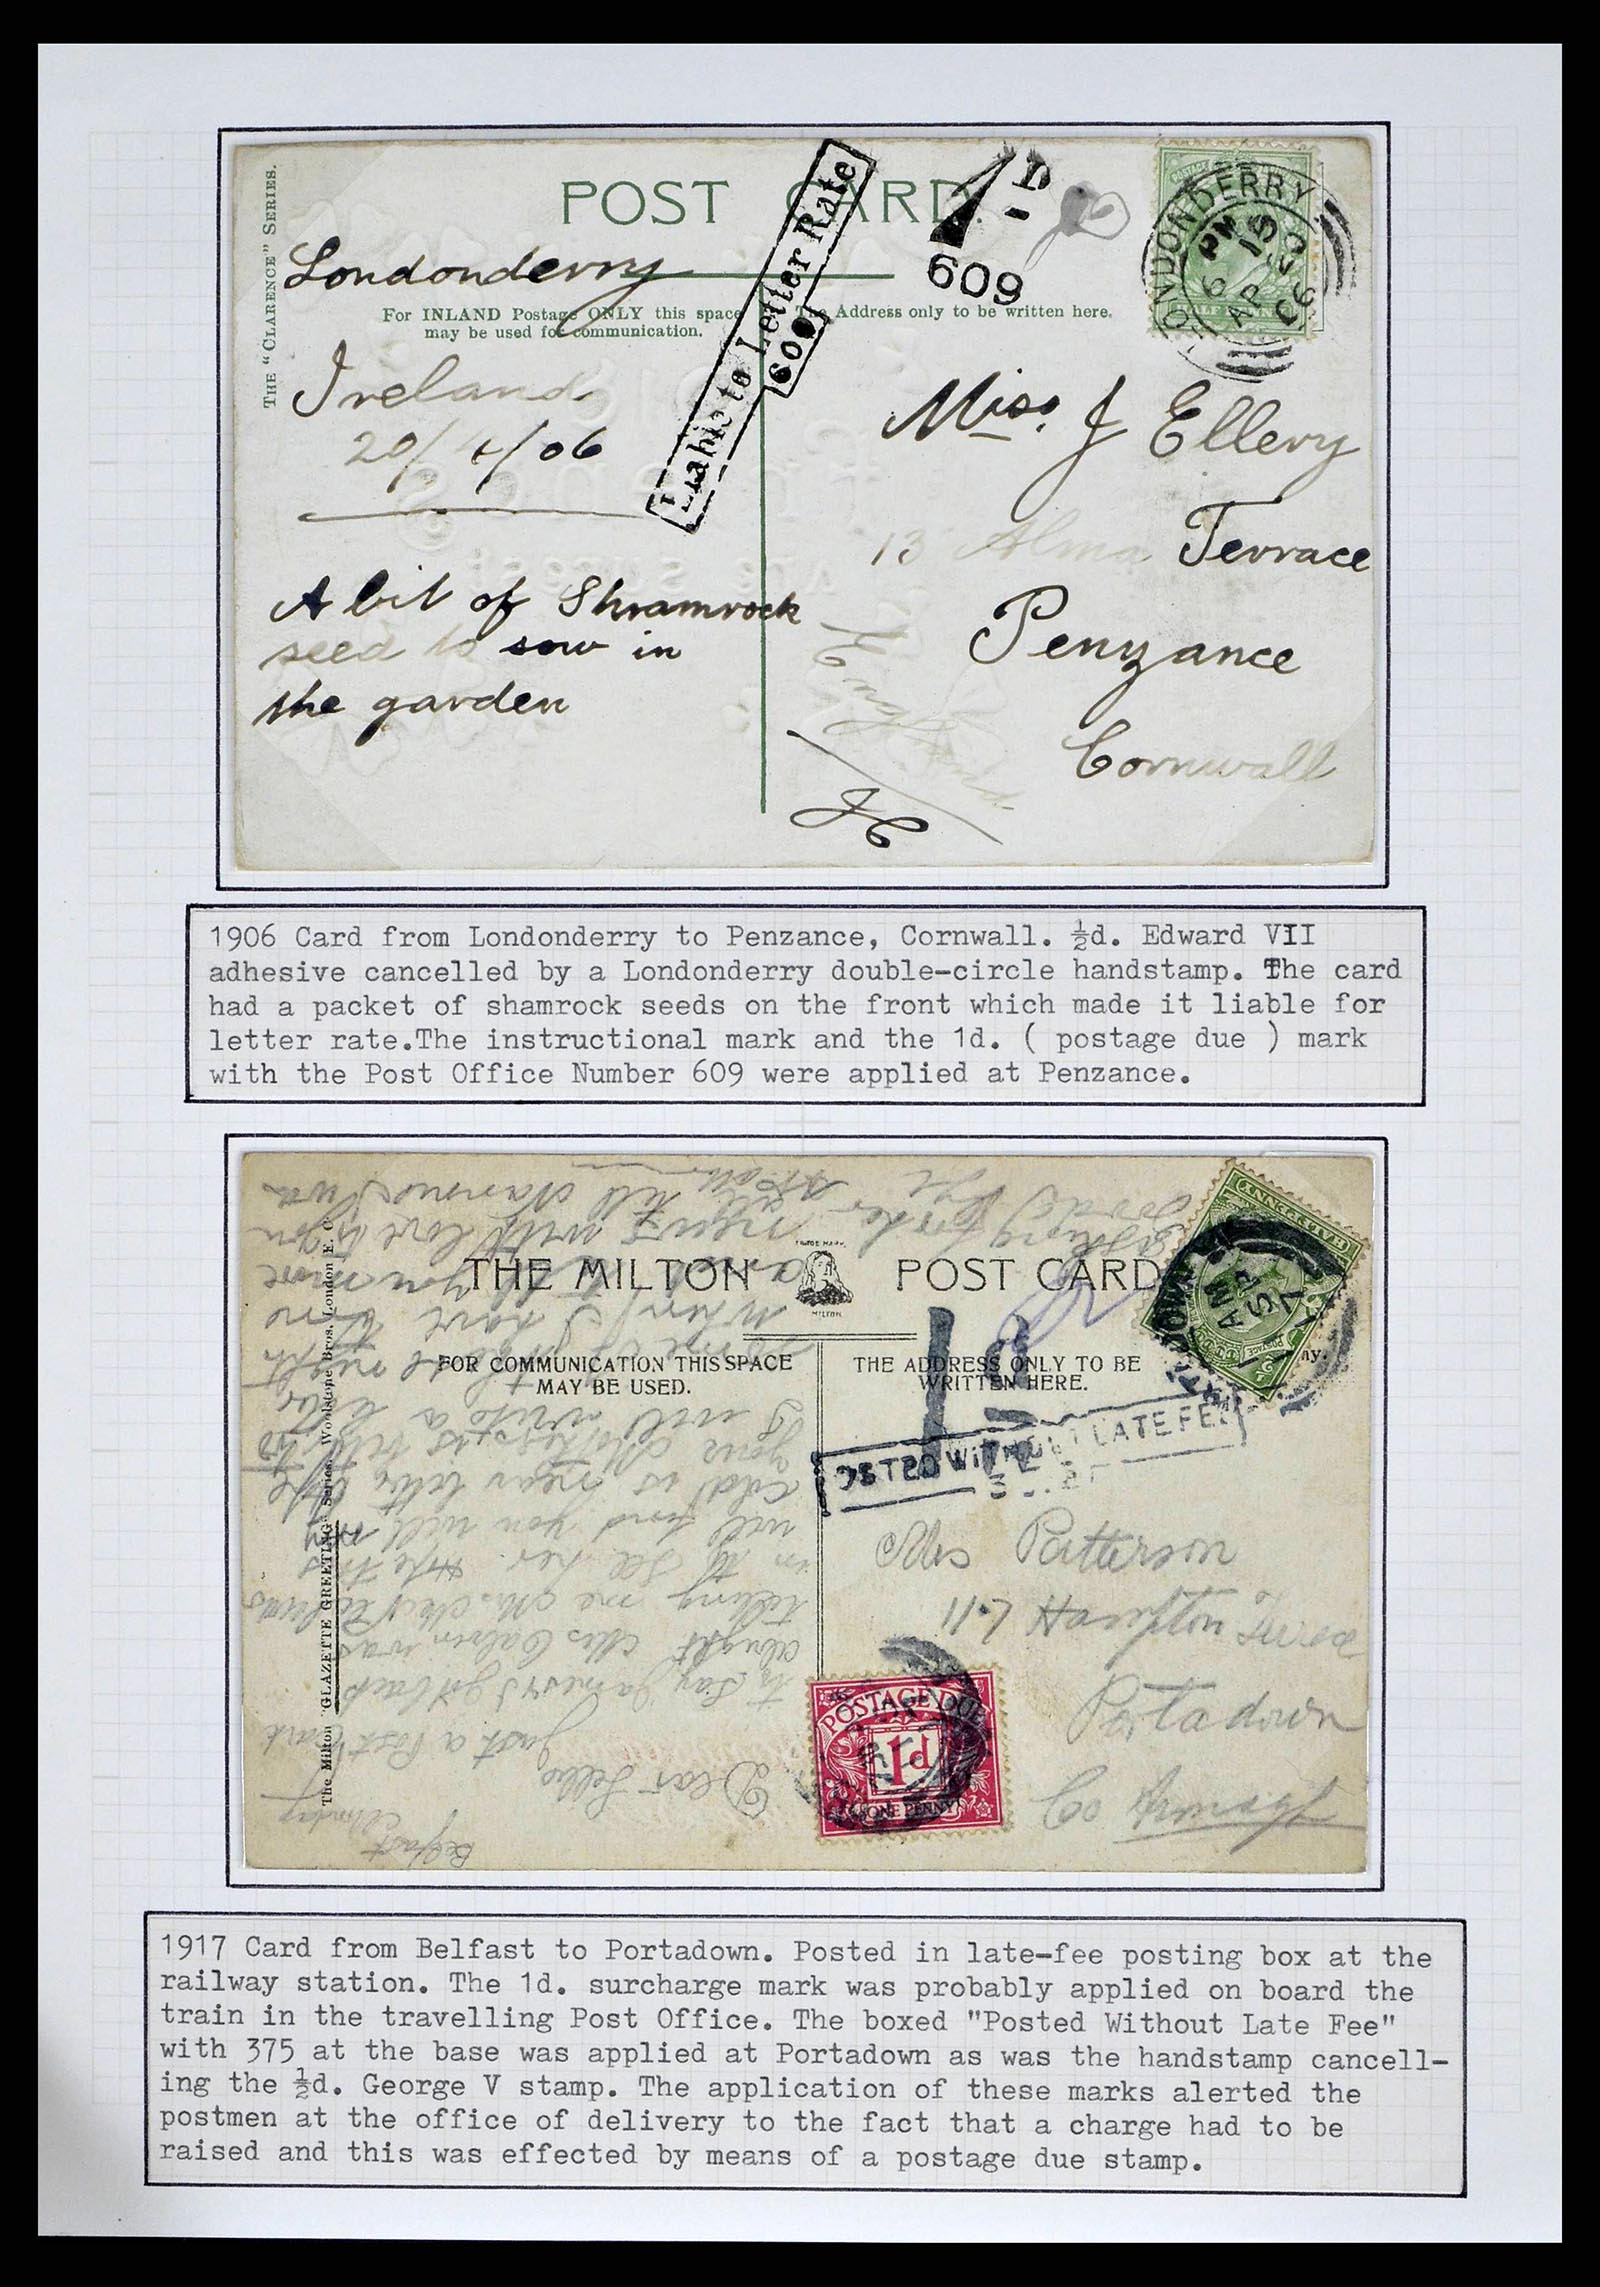 THE "CLARENCE" SERIES.
POST CARD.
Londonderry
For INLAND Postage ONLY this space
may be used for communication.
The Address only to be written here.
Liable to Letter Rate
609
1D
609
LONDONDERRY
6 15 PM
AP 20
06
Ireland
20/4/06
A bit of Shramrock
seed to sow in
the garden
Miss. J Ellery
13 Alma Terrace
Penzance
Cornwall
1906 Card from Londonderry to Penzance, Cornwall. ½d. Edward VII
adhesive cancelled by a Londonderry double-circle handstamp. The card
had a packet of shamrock seeds on the front which made it liable for
letter rate.The instructional mark and the 1d. ( postage due ) mark
with the Post Office Number 609 were applied at Penzance.
THE MILTON POST CARD
TRADE MARK.
MILTON
FOR COMMUNICATION THIS SPACE
MAY BE USED.
THE ADDRESS ONLY TO BE
WRITTEN HERE.
The Milton "GLAZETTE GREETING" Series. Woolstone Bros. London E. C.
1d
OSTED WITHOUT LATE FEE
Belfast
Monday
Dear
Just a Post Card
to say James & I got back
alright Mrs was
telling me
in to see her. Hope this
will find you well
your
I will write a letter
some of these nights
when I have time
and you more
news with love to you
all
Mrs Patterson
Portadown
Co Armagh
POSTAGE DUE
1d
ONE PENNY
1917 Card from Belfast to Portadown. Posted in late-fee posting box at the
railway station. The 1d. surcharge mark was probably applied on board the
train in the travelling Post Office. The boxed "Posted Without Late Fee"
with 375 at the base was applied at Portadown as was the handstamp cancell-
ing the ½d. George V stamp. The application of these marks alerted the
postmen at the office of delivery to the fact that a charge had to be
raised and this was effected by means of a postage due stamp.